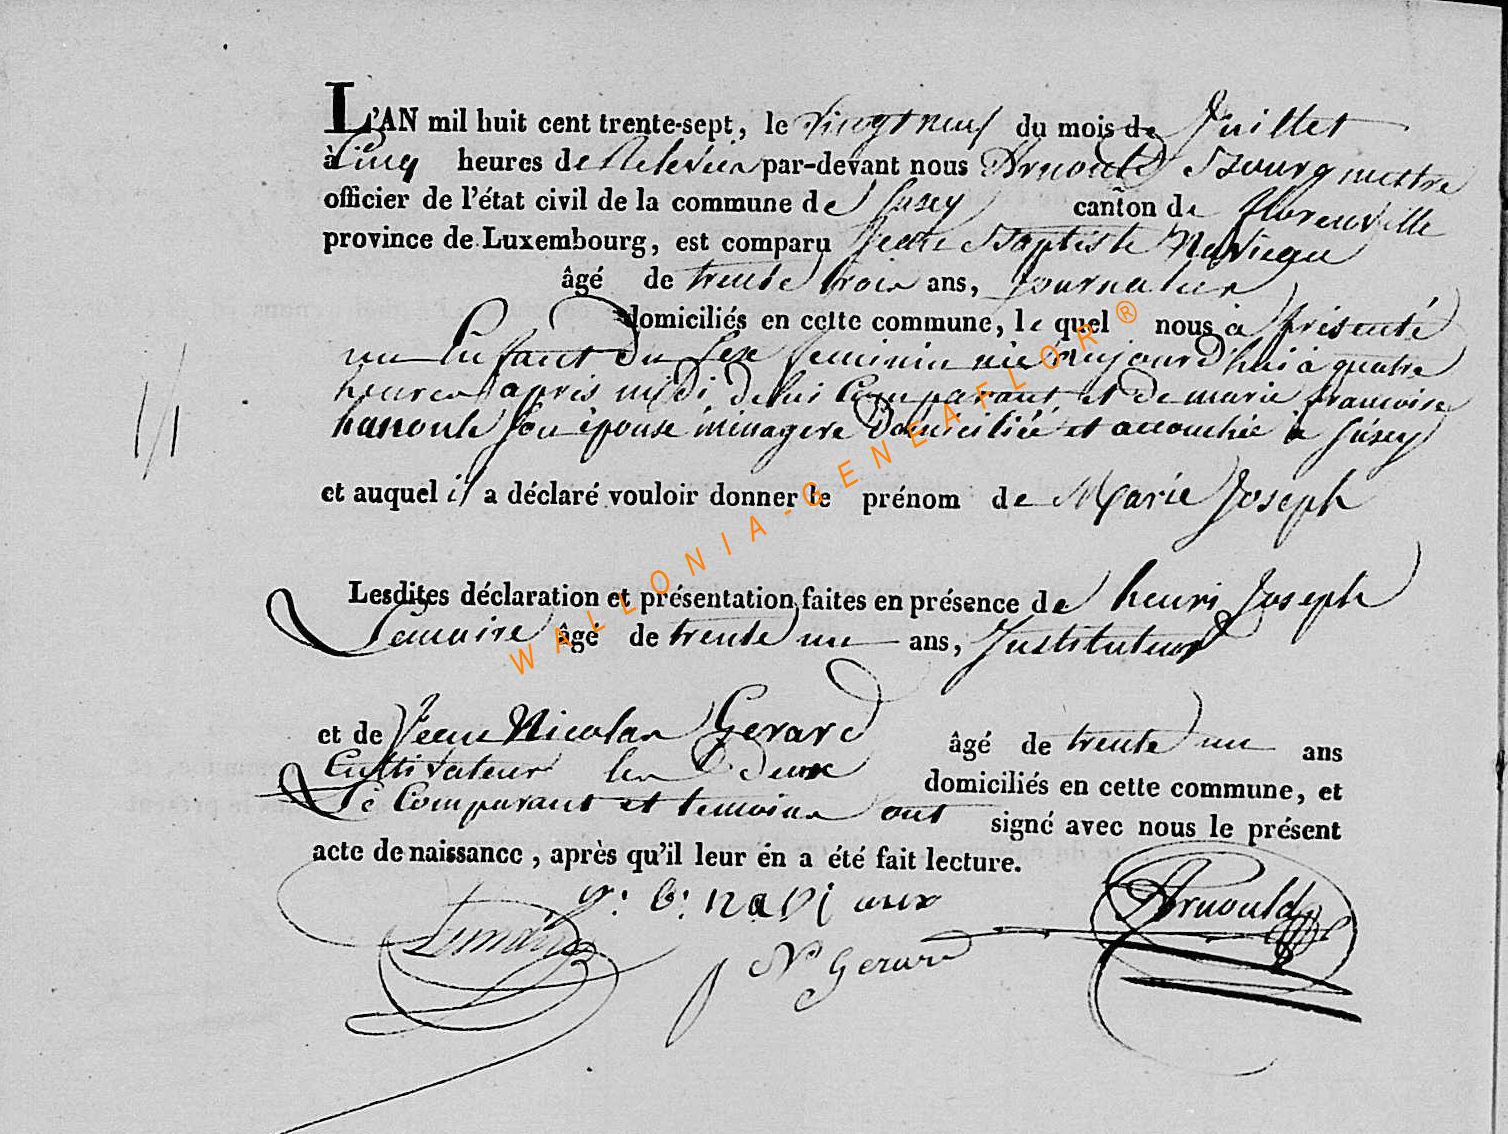 L'AN mil huit cent trente-sept, le vingt neuf du mois de Juillet
à Cinq heures de Relevée par-devant nous Arnould Bourgmestre
officier de l'état civil de la commune de Jusey canton de florenville
province de Luxembourg, est comparu Jean Baptiste Naviaux
âgé de trente trois ans, Journalier
domiciliés en cette commune, le quel nous a présenté
un Enfant du Sexe feminin née aujourd'hui à quatre
heures après midi, de lui Comparant et de marie francoise
son épouse ménagere domiciliée et accouchée à Jusey
et auquel il a déclaré vouloir donner le prénom de Marie Joseph
Lesdites déclaration et présentation faites en présence de henri Joseph
Lemaire âgé de trente un ans, Instituteur
et de Jean Nicolas Gerard âgé de trente un ans
Cultivateur les Deux domiciliés en cette commune, et
Le Comparant et temoins ont signé avec nous le présent
acte de naissance, après qu'il leur en a été fait lecture.
j: b: naviaux
Lemaire
Arnould
N Gerard
WALLONIA-GENEAFLOR®